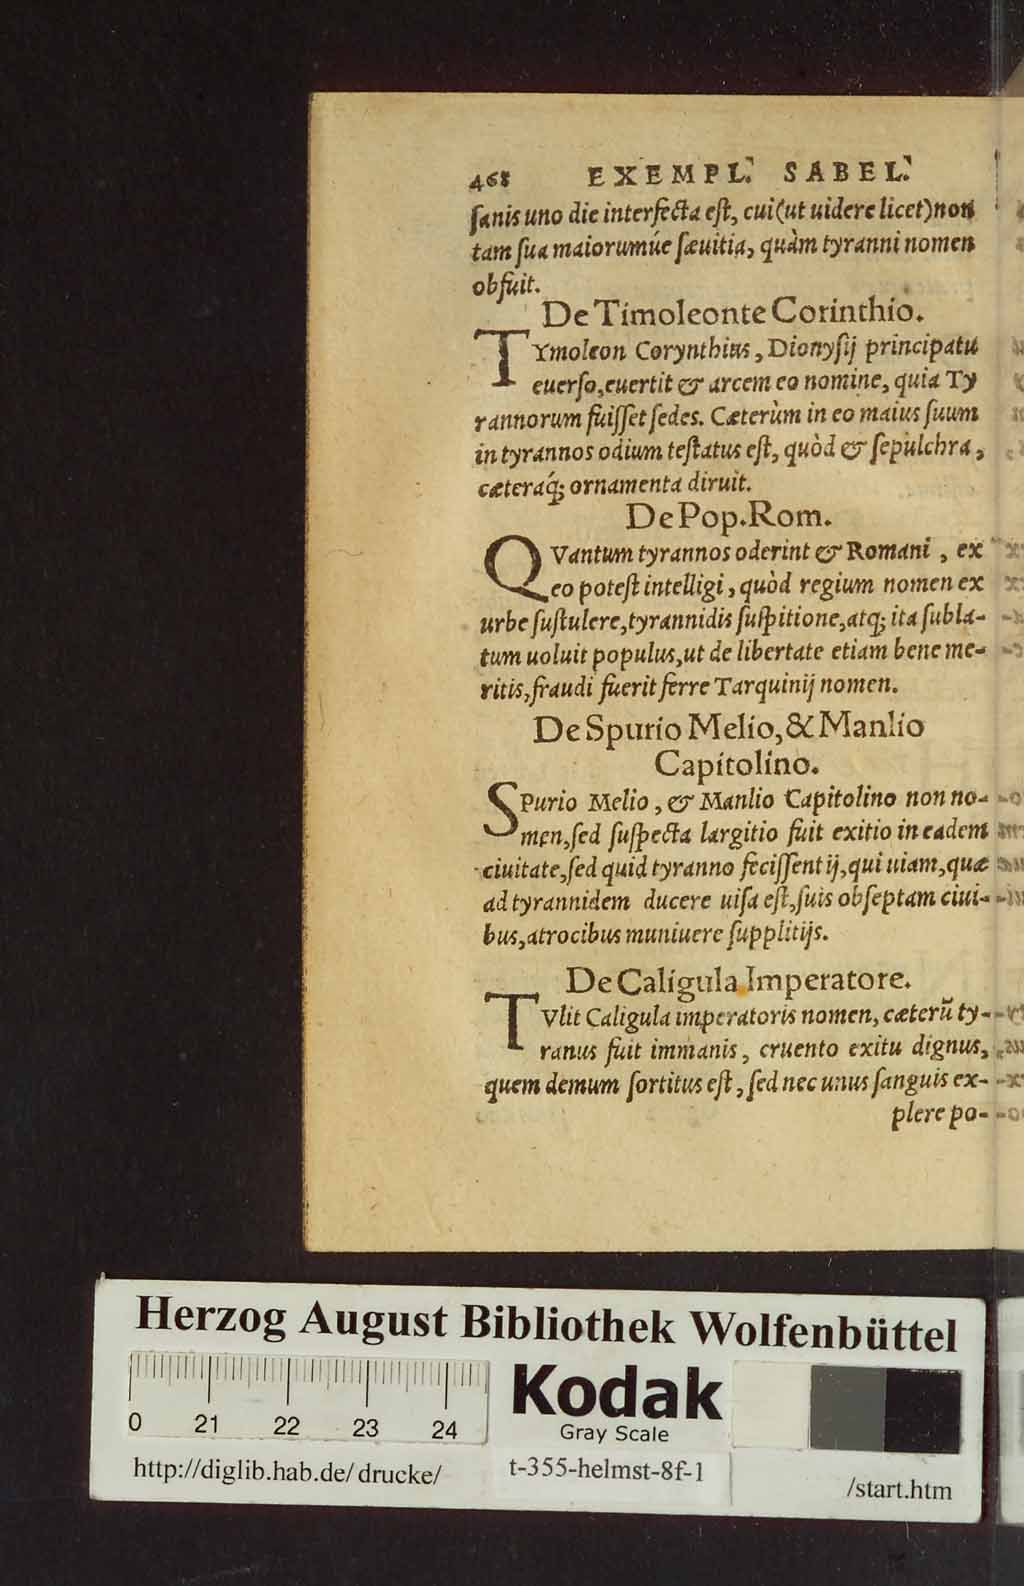 468 EXEMPL. SABEL.
ſanis uno die interfecta eſt, cui(ut uidere licet)non
tam ſua maiorumúe ſæuitia, quàm tyranni nomen
obfuit.
De Timoleonte Corinthio.
TYmoleon Corynthius, Dionyſij principatu
euerſo, euertit & arcem eo nomine, quia Ty
rannorum fuiſſet ſedes. Cæterùm in eo maius ſuum
in tyrannos odium teſtatus eſt, quòd & ſepulchra,
cæteraq́; ornamenta diruit.
De Pop. Rom.
QVantum tyrannos oderint & Romani, ex
eo poteſt intelligi, quòd regium nomen ex
urbe ſuſtulere, tyrannidis ſuſpitione, atq; ita ſubla-
tum uoluit populus, ut de libertate etiam bene me-
ritis, fraudi fuerit ferre Tarquinij nomen.
De Spurio Melio, & Manlio
Capitolino.
SPurio Melio, & Manlio Capitolino non no-
men, ſed ſuſpecta largitio fuit exitio in eadem
ciuitate, ſed quid tyranno feciſſent ij, qui uiam, quæ
ad tyrannidem ducere uiſa eſt, ſuis obſeptam ciui-
bus, atrocibus muniuere ſupplitijs.
De Caligula Imperatore.
TVlit Caligula imperatoris nomen, cæterũ ty-
ranus fuit immanis, cruento exitu dignus,
quem demum ſortitus eſt, ſed nec unus ſanguis ex-
plere po-
Herzog August Bibliothek Wolfenbüttel
0 21 22 23 24
Kodak
Gray Scale
http://diglib.hab.de/drucke/ t-355-helmst-8f-1 /start.htm